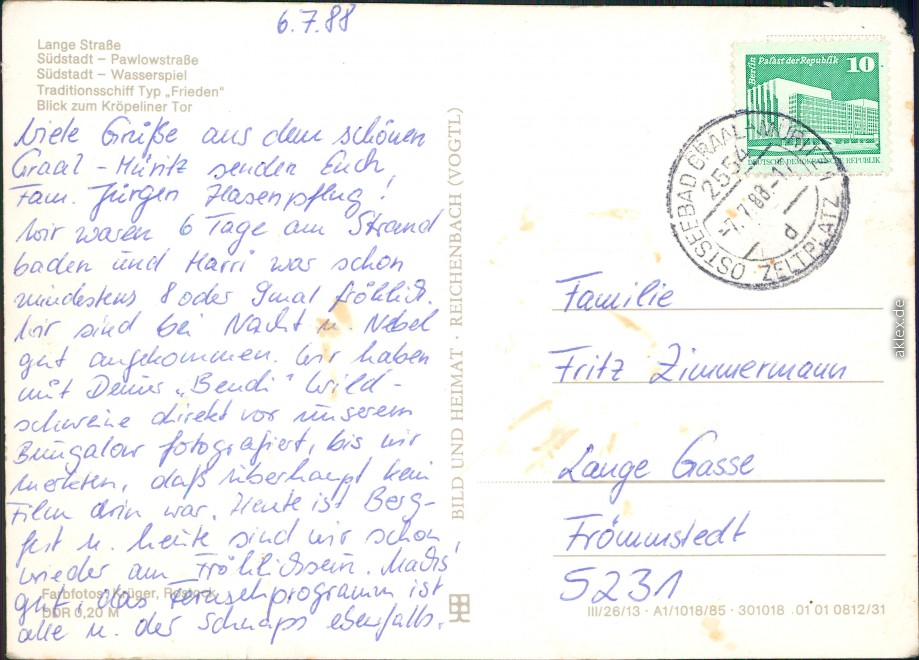 6.7.88
Lange Straße
Südstadt – Pawlowstraße
Südstadt – Wasserspiel
Traditionsschiff Typ „Frieden"
Blick zum Kröpeliner Tor
Viele Grüße aus dem schönen
Graal-Müritz senden Euch
Fam. Jürgen Hasenpflug!
Wir waren 6 Tage am Strand
baden und Harri war schon
mindestens 8 oder 9mal fröhlich.
Wir sind bei Nacht u. Nebel
gut angekommen. Wir haben
mit Deiner „Bendi" Wild-
schweine direkt vor unserem
Bungalow fotografiert, bis wir
merkten, daß überhaupt kein
Film drin war. Heute ist Berg-
fest u. heute sind wir schon
wieder am Fröhlichsein. Machts
gut, das Fernsehprogramm ist
alle u. der Schnaps ebenfalls.
Farbfotos: Krüger, Rostock
DDR 0,20 M
BILD UND HEIMAT · REICHENBACH (VOGTL)
Berlin Palast der Republik 10
DEUTSCHE DEMOKRATISCHE REPUBLIK
OSTSEEBAD GRAAL-MÜRITZ 1
2554
-7.7.88-11
d
ZELTPLATZ
Familie
Fritz Zimmermann
Lange Gasse
Frömmstedt
5231
III/26/13 · A1/1018/85 · 301018 .01 01 0812/31
aklex.de